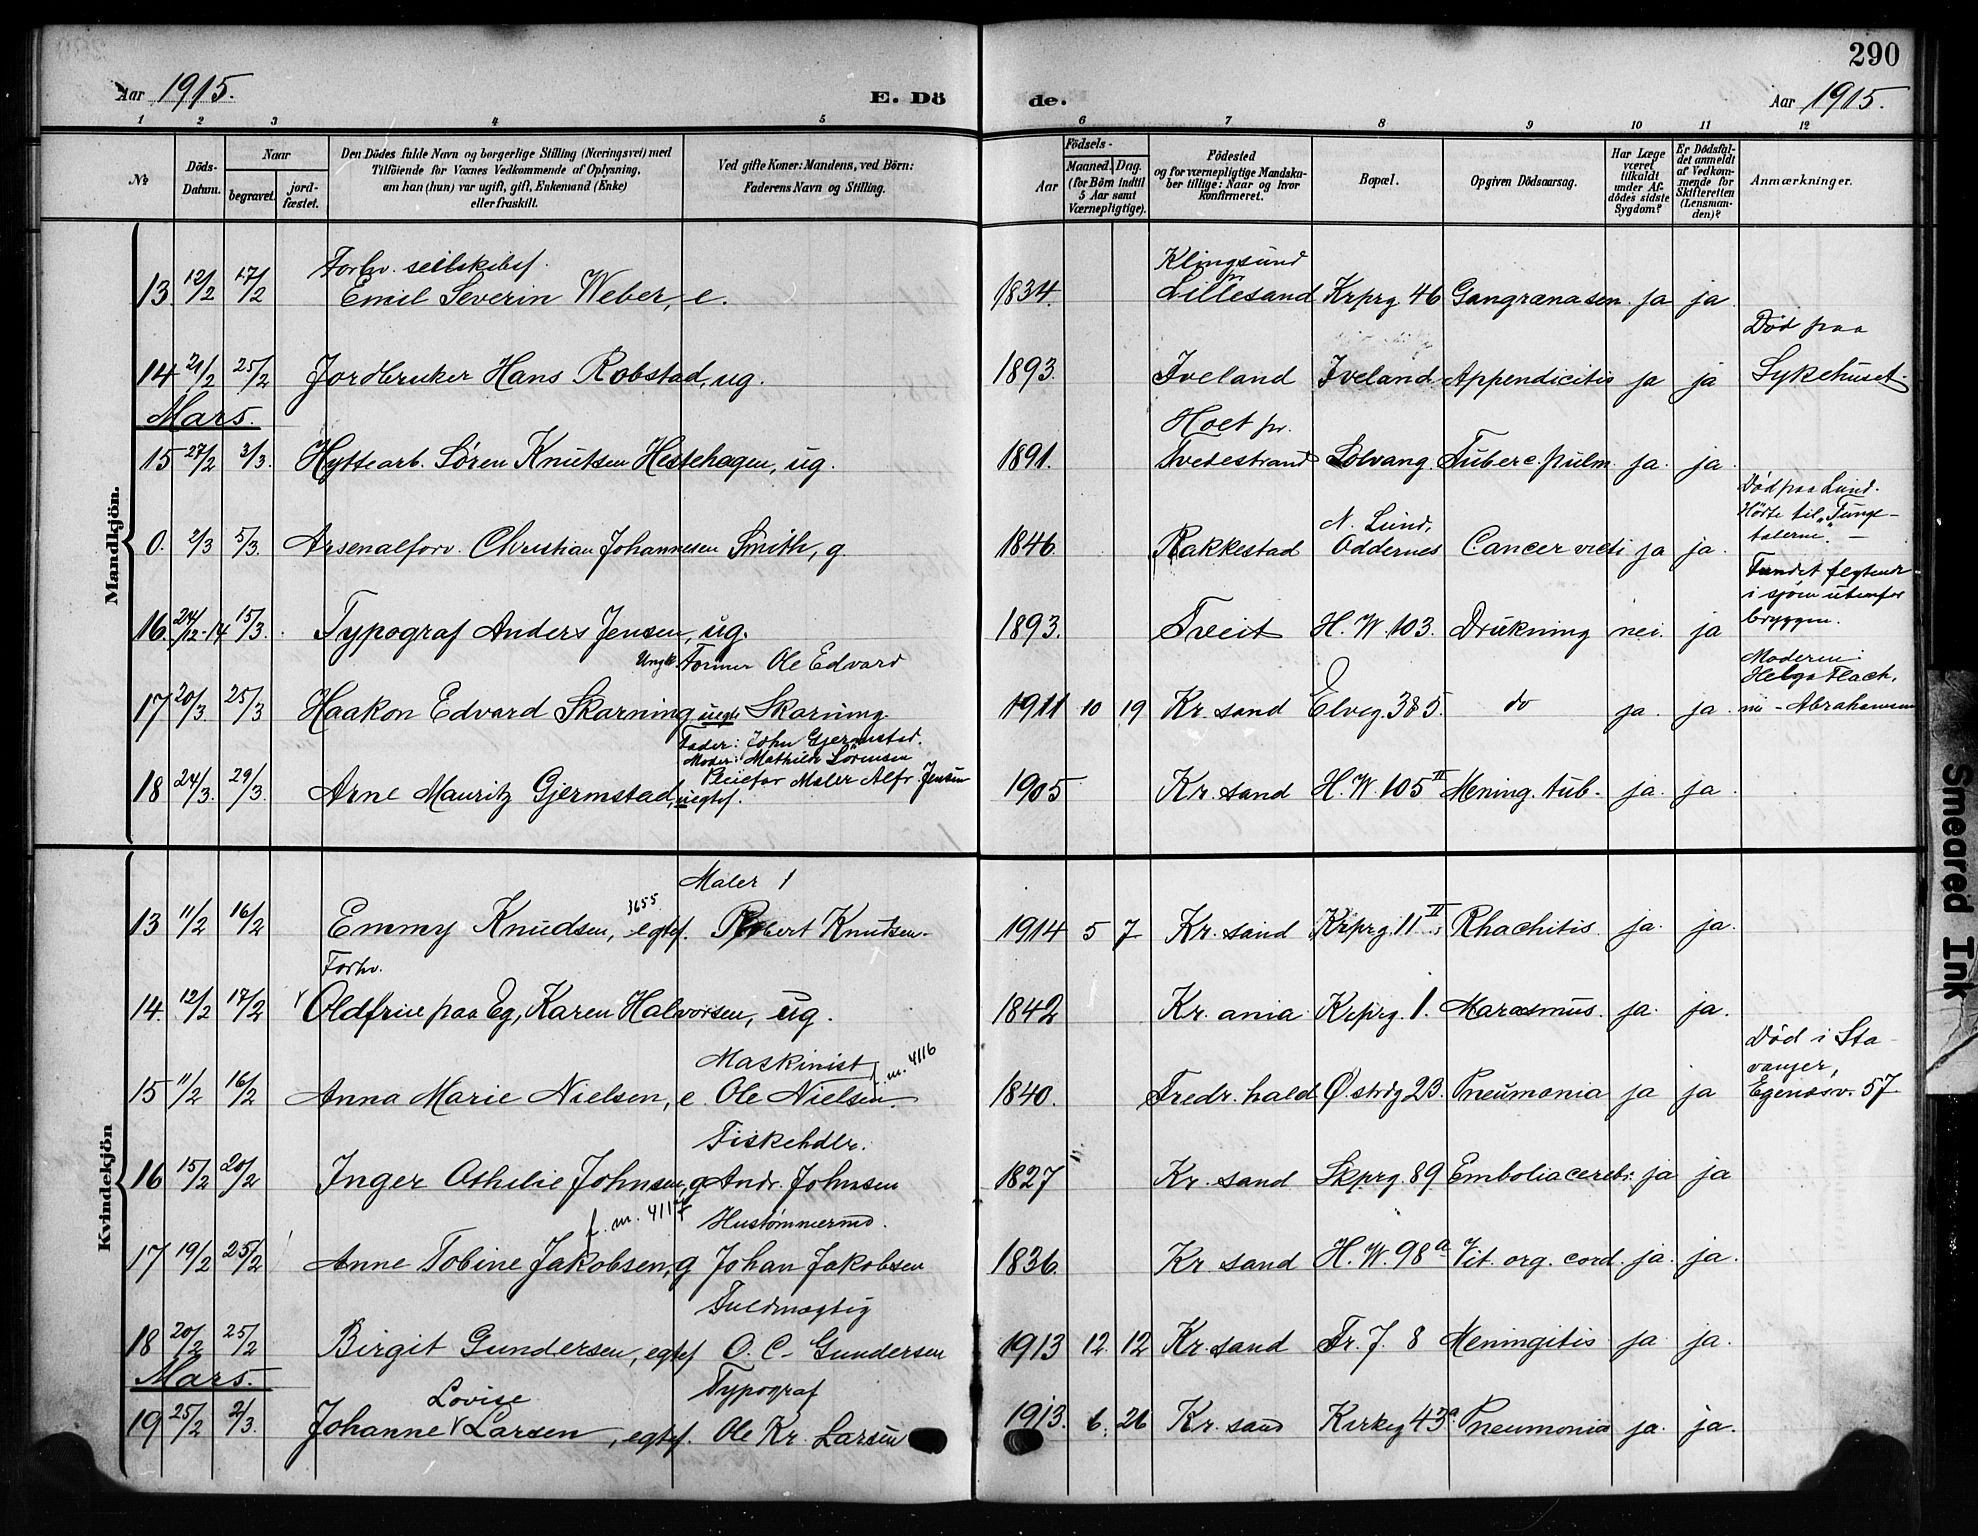 290
Aar 1915. E. Dö de. Aar 1915.
1 2 3 4 5 6 7 8 9 10 11 12
No. Döds-Datum. Naar begravet. jordfæstet. Den Dödes fulde Navn og borgerlige Stilling (Næringsvei) med Tilföiende for Voxnes Vedkommende af Oplysning, om han (hun) var ugift, gift, Enkemand (Enke) eller fraskilt. Ved gifte Koner: Mandens, ved Börn: Faderens Navn og Stilling. Födsels- Aar Maaned. Dag. (for Börn indtil 5 Aar samt Værnepligtige). Födested og for værnepligtige Mandskaber tillige: Naar og hvor konfirmeret. Bopæl. Opgiven Dödsaarsag. Har Læge været tilkaldt under Afdödes sidste Sygdom? Er Dödsfaldet anmeldt af Vedkommende for Skifteretten (Lensmanden)? Anmærkninger.
Mandkjön.
Forhv. seilskibsf. Klingsund pr.
13. 12/2 17/2 Emil Severin Weber, e. 1834. Lillesand Krprg. 46 Gangræna sen. ja ja.
Död paa
14 21/2 25/2 Jordbruker Hans Robstad, ug. 1893. Iveland Iveland Appendicitis ja ja Sykehuset.
Mars. Hoet pr.
15 27/2 3/3. Hyttearb. Sören Knutsen Hestehagen, ug. 1891. Tvedestrand Solvang. Tuberc. pulm. ja. ja.
N. Lund, Död paa Lund. Hörte til "Tunge-
0. 2/3 5/3. Arsenalforv. Christian Johannesen Smith, g. 1846. Rakkestad Oddernes Cancer vecti ja ja. talerne". –
Fundet flytende i sjöen utenfor
16. 24/12-14 15/3. Typograf Anders Jensen, ug. 1893. Tveit H. W. 103. Drukning nei. ja bryggen.
Ungk. Former Ole Edvard Moderen: Helga Flach,
17 20/3. 25/3 Haakon Edvard Skarning, uegte Skarning. 1911 10 19 Kr. sand Elveg. 38 5. do ja. ja. – Abrahamsen
Fader: John Gjermstad.
Moder: Mathilde Sörensen
Pleiefar Maler Alfr. Jensen
18 24/3. 29/3. Arne Mauritz Gjermstad, uegtef. 1905 Kr. sand H. W. 105 II Mening. tub. ja. ja.
Kvindekjön
Maler 1
3655
13 11/2 16/2 Emmy Knudsen, egtef. Robert Knudsen. 1914 5 7 Kr. sand Krprg. 11 II, Rhachitis. ja. ja.
Forhv.
14. 12/2 17/2 Oldfrue paa Eg, Karen Halvorsen, ug. 1842 Kr. ania Krprg. 1. Marasmus. ja. ja.
Maskinist f. m. 4116 Död i Stavanger,
15 11/2 16/2 Anna Marie Nielsen, e. Ole Nielsen. 1840. Fredr. hald Ö. strdg 23. Pneumonia ja ja Egenæsv. 57
Fiskehdlr.
16 15/2 20/2 Inger Othilie Johnsen, g. Andr. Johnsen 1827 Kr. sand Skprg. 89 Embolia cerebr. ja ja
f. m. 4117 Hustömmermd.
17 19/2 25/2 Anne Tobine Jakobsen, g Johan Jakobsen 1836. Kr. sand H. W. 98 a Vit. org. cord. ja. ja.
Fuldmægtig
18 20/2 25/2 Birgit Gundersen, egtef O. C. Gundersen 1913 12. 12 Kr. sand Tr. J. 8 Meningitis ja ja.
Mars. Lovise Typograf
19 25/2 2/3. Johanne V Larsen, egtef. Ole Kr. Larsen 1913. 6. 26 Kr. sand Kirkeg 43 a Pneumonia ja. ja.
Smeared Ink